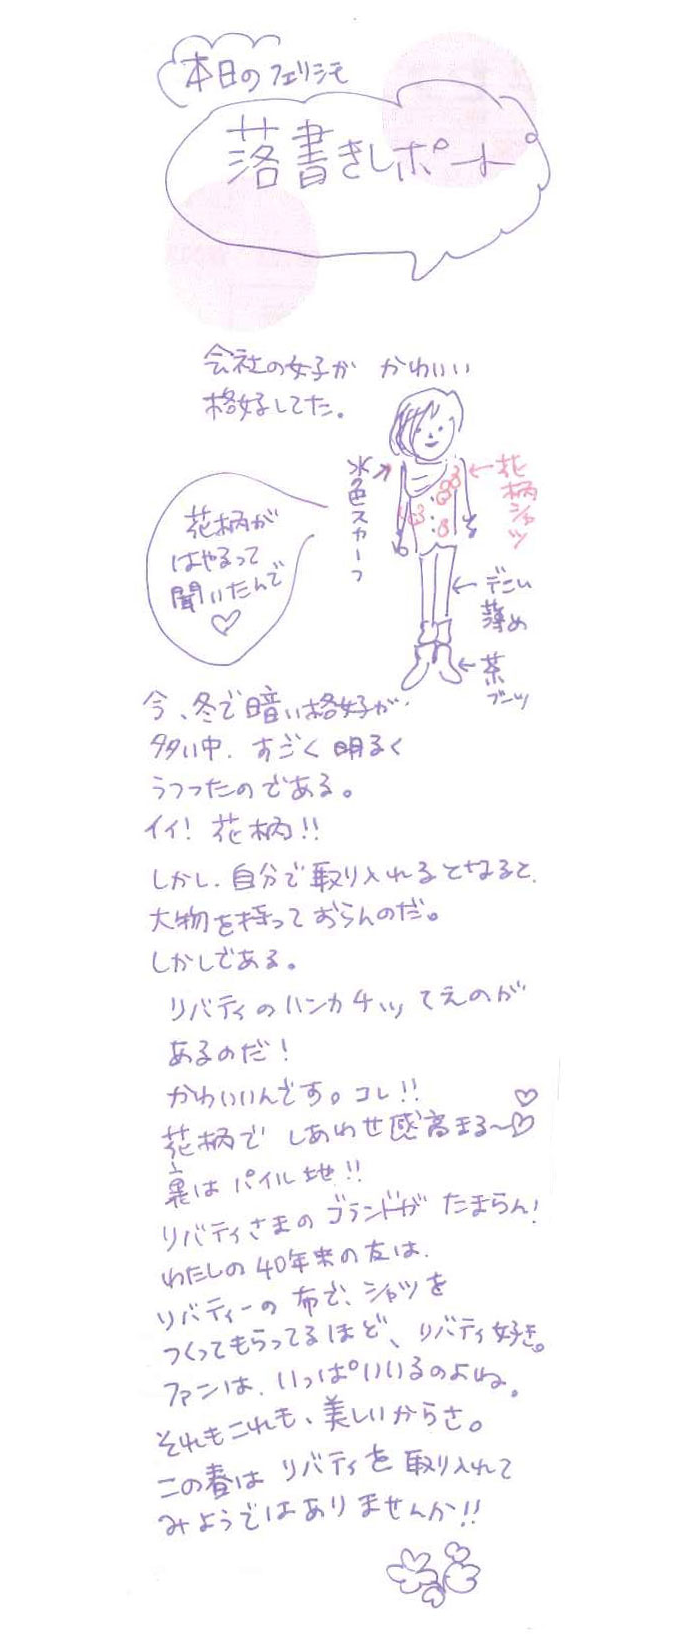 本日のフェリシモ
落書きレポート
会社の女子が かわいい
格好してた。
水色スカーフ
花柄シャツ
花柄が
はやるって
聞いたんで
♡
デニム
薄め
茶
ブーツ
今、冬で暗い格好が
多い中、すごく明るく
うつったのである。
イイ! 花柄!!
しかし、自分で取り入れるとなると、
大物を持っておらんのだ。
しかしである。
リバティのハンカチッてえのが
あるのだ!
かわいいんです。コレ!!
花柄で しあわせ感高まる〜♡
裏は パイル地!!
リバティさまの ブランドが たまらん!
わたしの40年来の友は、
リバティーの 布で、シャツを
つくってもらってるほど、リバティ好き。
ファンは、いっぱいいるのよね。
それもこれも、美しいからさ。
この春は リバティを取り入れて
みようではありませんか!!